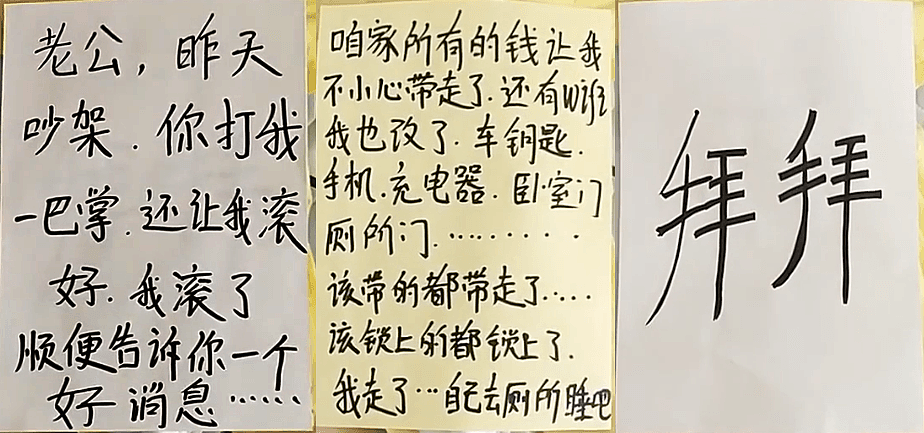 老公，昨天
吵架．你打我
一巴掌．还让我滚
好．我滚了
顺便告诉你一个
好消息……
咱家所有的钱让我
不小心带走了．还有Wifi
我也改了．车钥匙．
手机．充电器．卧室门
厕所门．………
该带的都带走了……
该锁上的都锁上了．
我走了…自己去厕所睡吧
拜拜